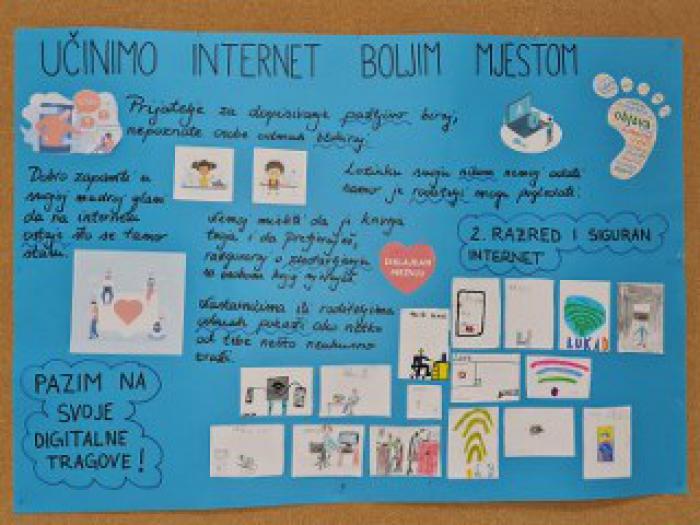 UČINIMO INTERNET BOLJIM MJESTOM
Prijatelje za dopisivanje pažljivo biraj,
nepoznate osobe odmah blokiraj.
objava
Dobro zapamti u
svojoj mudroj glavi
da na internetu
ostaje što se tamo
stavi.
Lozinku svoju nikom nemoj odati
samo je roditelji mogu pogledati.
Nemoj misliti da je krivnja
tvoja i da pretjeruješ,
razgovaraj o zlostavljanju
sa osobom kojoj vjeruješ
2. RAZRED I SIGURAN
INTERNET
Nastavnicima ili roditeljima
odmah pokaži ako netko
od tebe nešto neukusno
traži.
LUKA
PAZIM NA
SVOJE
DIGITALNE
TRAGOVE!